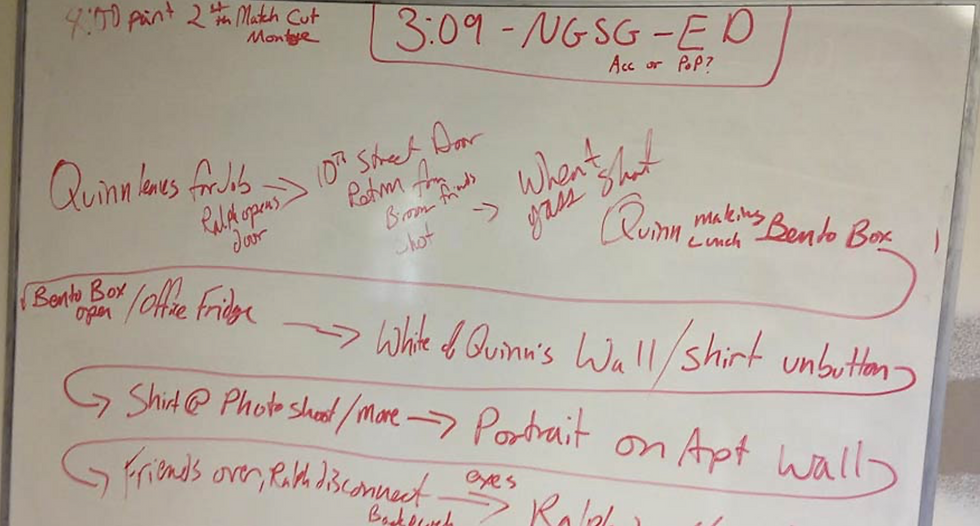 4:00 point 2 4th Match Cut
Montage
3:09 - NGSG - ED
Acc or PoP?
Quinn leaves for Job →
Ralph opens
door
10th Street Door
Return from
shot
→
When't shot
gass
Quinn making Lunch Bento Box
Bento Box open / Office Fridge → White of Quinn's Wall / shirt unbutton
→ Shirt @ Photo shoot / more → Portrait on Apt Wall
→ Friends over, Ralph disconnect eyes →
Ralph